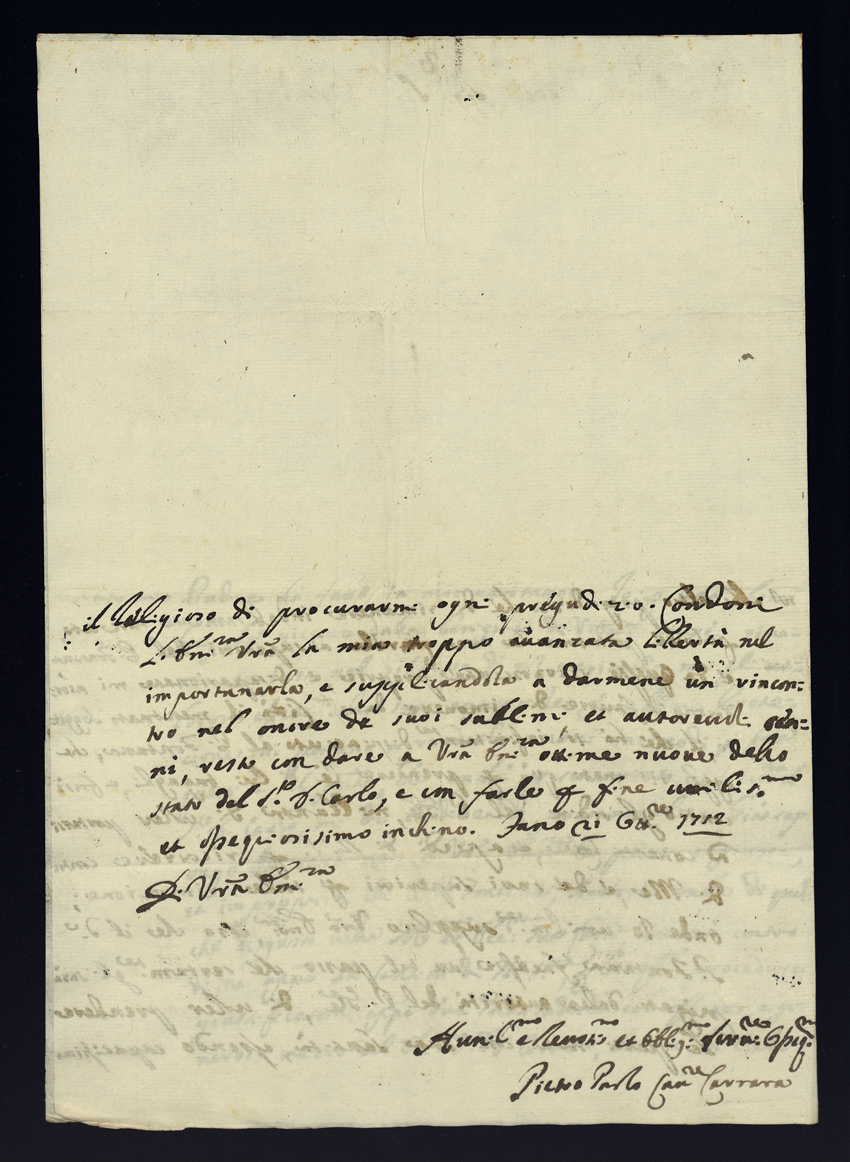 il Religioso di procurarmi ogni pregiudizio. Condoni
V.S. Em.za Vrã la mia troppo avanzata libertà nel
importunarla, e supplicandola a darmene un rincon:
tro nel onore de suoi sublimi, et autorevoli cen:
ni, resto con dare a Vrã Em.za ottime nuove dello
stato del S.r D. Carlo, e con farle q fine umiliss.mo
et ossequiosisimo inchino. Fano 21 Ott.re 1712
D. Vrã Em.za
Humil.mo e Devot.mo et Obblig.mo Servre Osseq.mo
Pietro Paolo Cav.re Carrara